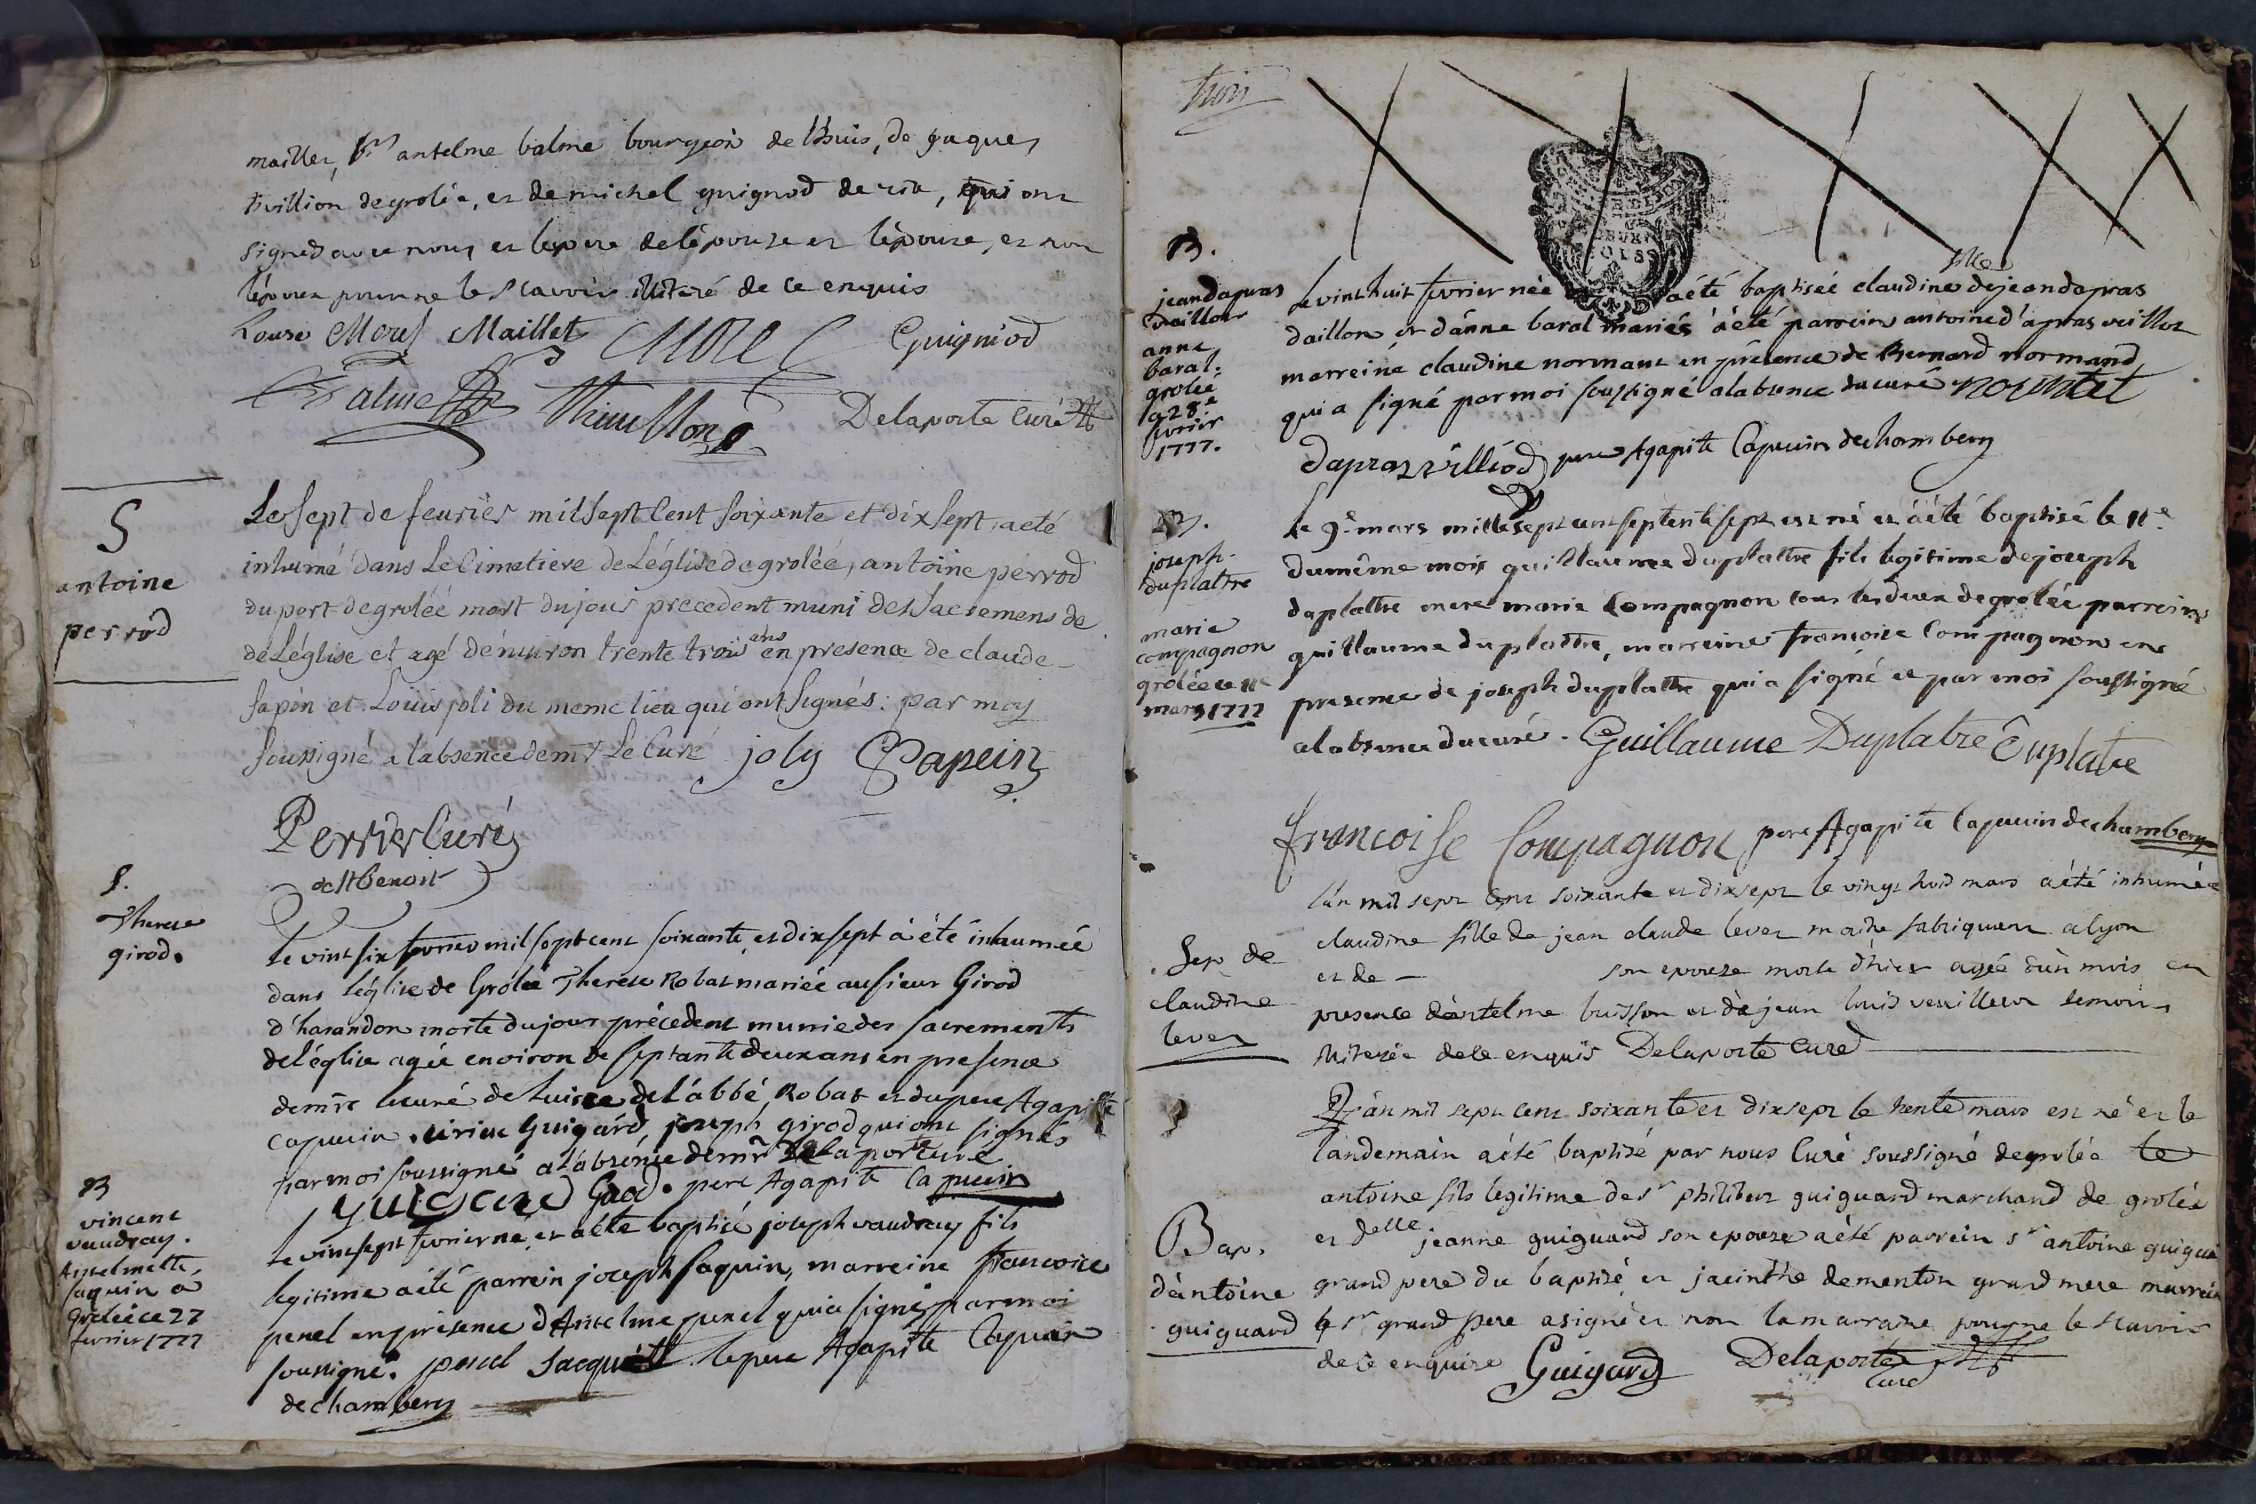 mailler, Sr antelme balme bourgeois de lhuis, de jaques
trvillion de grolée, et de michel guignod de rix, qui ont
signés avec nous et le pere de lépouse et lépouse, et non
lépoux pour ne le scavoir illiteré de ce enquis
Louise Morel Maillet MOREL Guigniod
Balme Thivillon Delaporte Curé
S
antoine
perrod
Le sept de feurier mil sept Cent soixante et dix sept, a eté
inhumé dans Le Cimetiere de Léglise de grolée, antoine perrod
du port de groléé mort du jour precedent muni des Sacremens de
de Léglise et agé dénuiron trente trois ans en presence de claude
papin et Loüis joli du meme lieu qui ont signés: par moy
soussigné a labsence de mr Le Curé joly Papein
Perrier Curé
de st Benoit
S.
Therese
girod.
le vint six fevrier mil sept cent soixante et dix sept a été inhumée
dans léglise de Grolée Therese Robat mariée au sieur Girod
d'harandon morte du jour précédent munie des sacrements
de léglise agée environ de septante deux ans en presence
de mre le curé de Luisce de lábbé Robat et du pere Agapitte
capucin. Guigard, joseph girod qui ont signés
par moi soussigné a labsence de mr De la porte curé
GUIGARD Girod. pere Agapite Capucin
B
vincent
vaudray.
Antelmette
saquin a
Groleé ce 27
fevrier 1777
le vint sept fevrier né et a été baptisé joseph vaudray fils
legitime a été parrein joseph saquin, marreine francoise
penel en présence d'Antelme penel qui a signé par moi
soussigné. penel Jacquett le pere Agapite Capucin
de chambery
B.
jean dapras
vaillot
anne
baral.
grolée
ce 28e
fevrier
1777.
le vint huit fevrier née a été baptiseé claudine fille de jean dapras
daillon et dánne baral mariés a été parrein antoine d'apras veillot
marreine claudine normant en présence de Bernard normand
qui a signé par moi soussigné a labsence du curé normtet
dapraz villiod pere Agapite Capucin de chambery
B.
joseph
duplattre
marie
compagnon
grolée ce 11e
mars 1777
le 9e mars mille sept cent septente sept est né et a été baptisé le 11e
du même mois guillaume duplattre fils legitime de joseph
duplattre mere marie Compagnon tous les deux de grolée parrein
guillaume duplattre, marreine francoise Compagnon en
presence de joseph duplattre qui a signé et par moi soussigné
a labsence du curé. Guillaume Duplatre Duplatre
francoise Compagnon pere Agapite Capucin de chambery
Sep de
claudine
levet
l'án mil sept cent soixante et dix sept le vingt huit mars a été inhumée
claudine fille de jean claude levet maitre fabriquant a lyon
et de — son epouze morte d'hier agée dún mois en
presence dántelme buisson et de jean louis veuilleron temoins
illiterés de ce enquis Delaporte Curé
Bap.
dántoine
guiguard
L'án mil sept cent soixante et dix sept le trente mars est né et le
landemain a été baptisé par nous Curé soussigné de grolée le
antoine fils legitime de sr philibert guiguard marchand de grolée
et delle jeanne guiguard son epouze a été parrein sr antoine guiguar
grand pere du baptisé et jacinthe dementon grand mere marrein
le sr grand pere a signé et non la marraine pour ne le scavoir
de ce enquise Guigard Delaporte
Curé